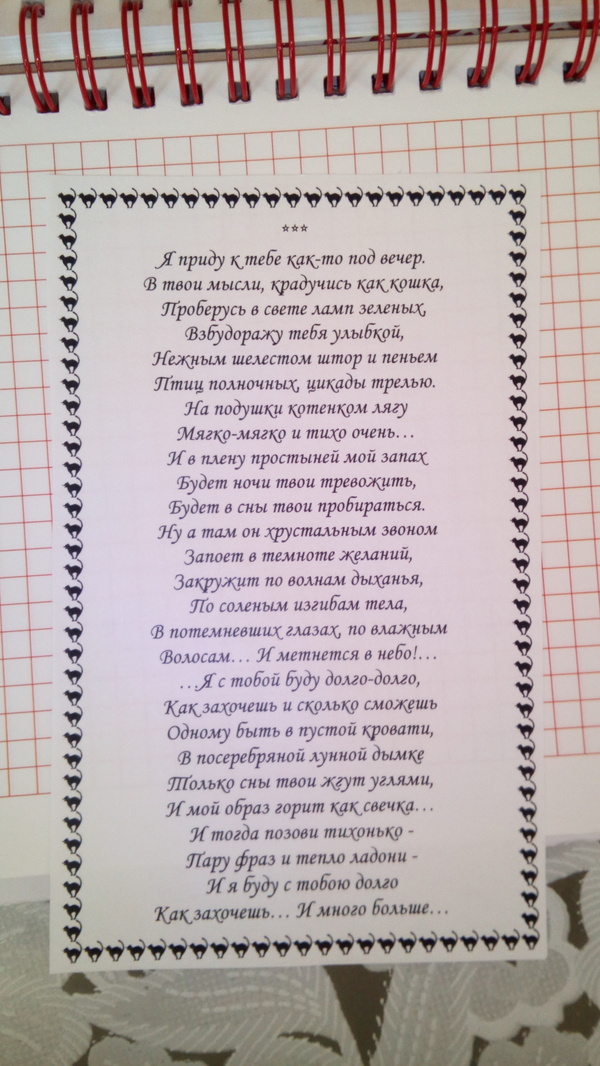 ***
Я приду к тебе как-то под вечер.
В твои мысли, крадучись как кошка,
Проберусь в свете ламп зеленых,
Взбудоражу тебя улыбкой,
Нежным шелестом штор и пеньем
Птиц полночных, цикады трелью.
На подушки котенком лягу
Мягко-мягко и тихо очень...
И в плену простыней мой запах
Будет ночи твои тревожить,
Будет в сны твои пробираться.
Ну а там он хрустальным звоном
Запоет в темноте желаний,
Закружит по волнам дыханья,
По соленым изгибам тела,
В потемневших глазах, по влажным
Волосам... И метнется в небо!...
...Я с тобой буду долго-долго,
Как захочешь и сколько сможешь
Одному быть в пустой кровати,
В посеребряной лунной дымке
Только сны твои жгут углями,
И мой образ горит как свечка...
И тогда позови тихонько -
Пару фраз и тепло ладони -
И я буду с тобою долго
Как захочешь... И много больше...